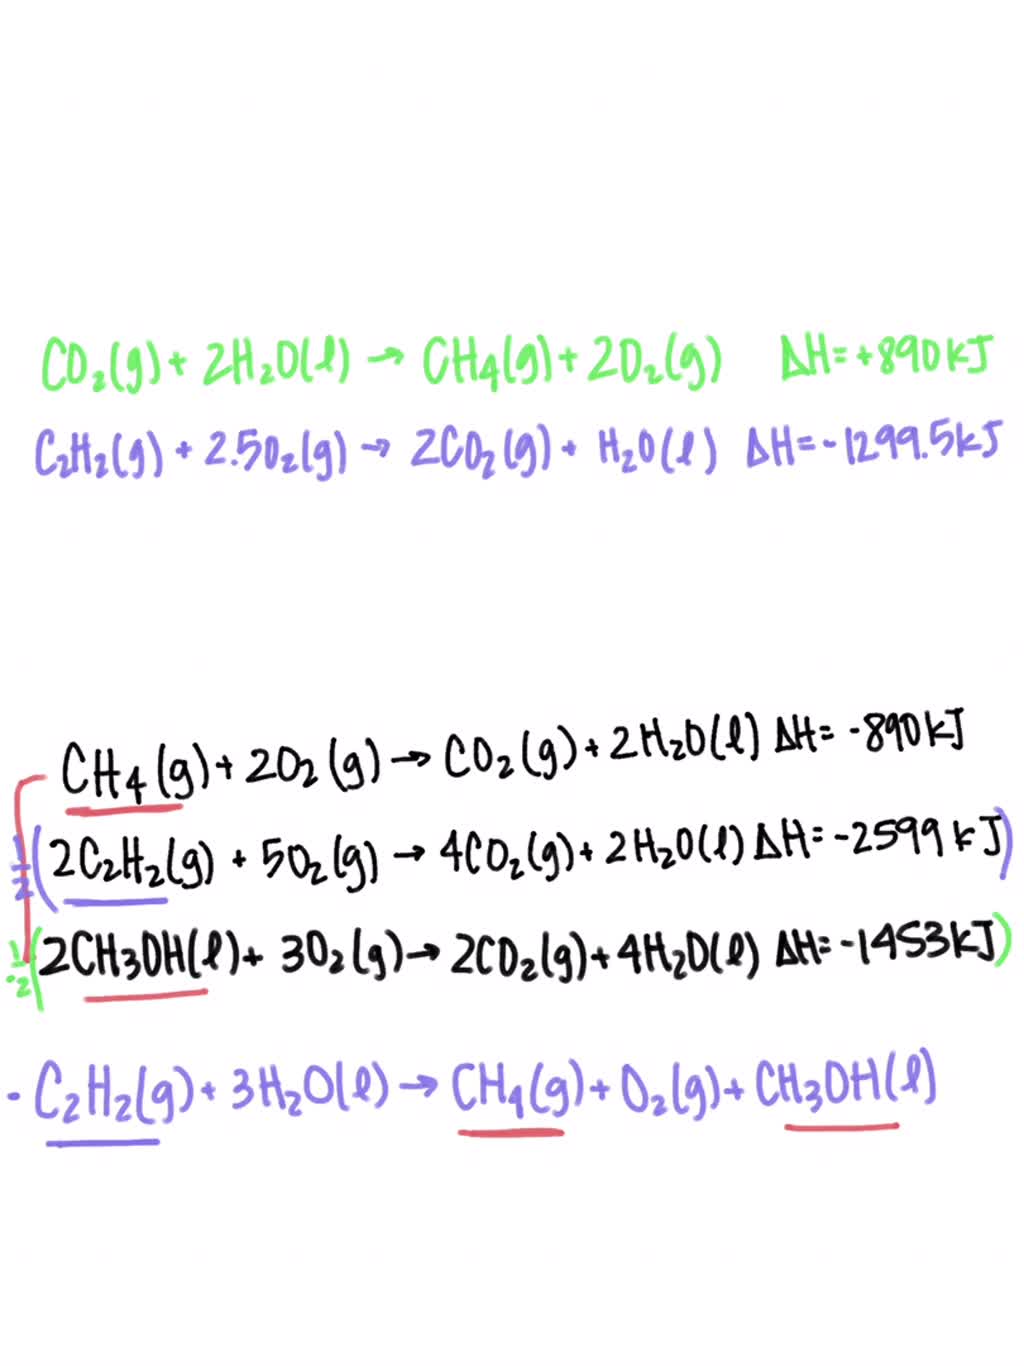 CO₂(g) + 2H₂O(l) → CH₄(g) + 2O₂(g) ΔH = +890 kJ
C₂H₂(g) + 2.5O₂(g) → 2CO₂(g) + H₂O(l) ΔH = -1299.5 kJ
CH₄(g) + 2O₂(g) → CO₂(g) + 2H₂O(l) ΔH = -890 kJ
½(2C₂H₂(g) + 5O₂(g) → 4CO₂(g) + 2H₂O(l) ΔH = -2599 kJ)
-½(2CH₃OH(l) + 3O₂(g) → 2CO₂(g) + 4H₂O(l) ΔH = -1453 kJ)
· C₂H₂(g) + 3H₂O(l) → CH₄(g) + O₂(g) + CH₃OH(l)